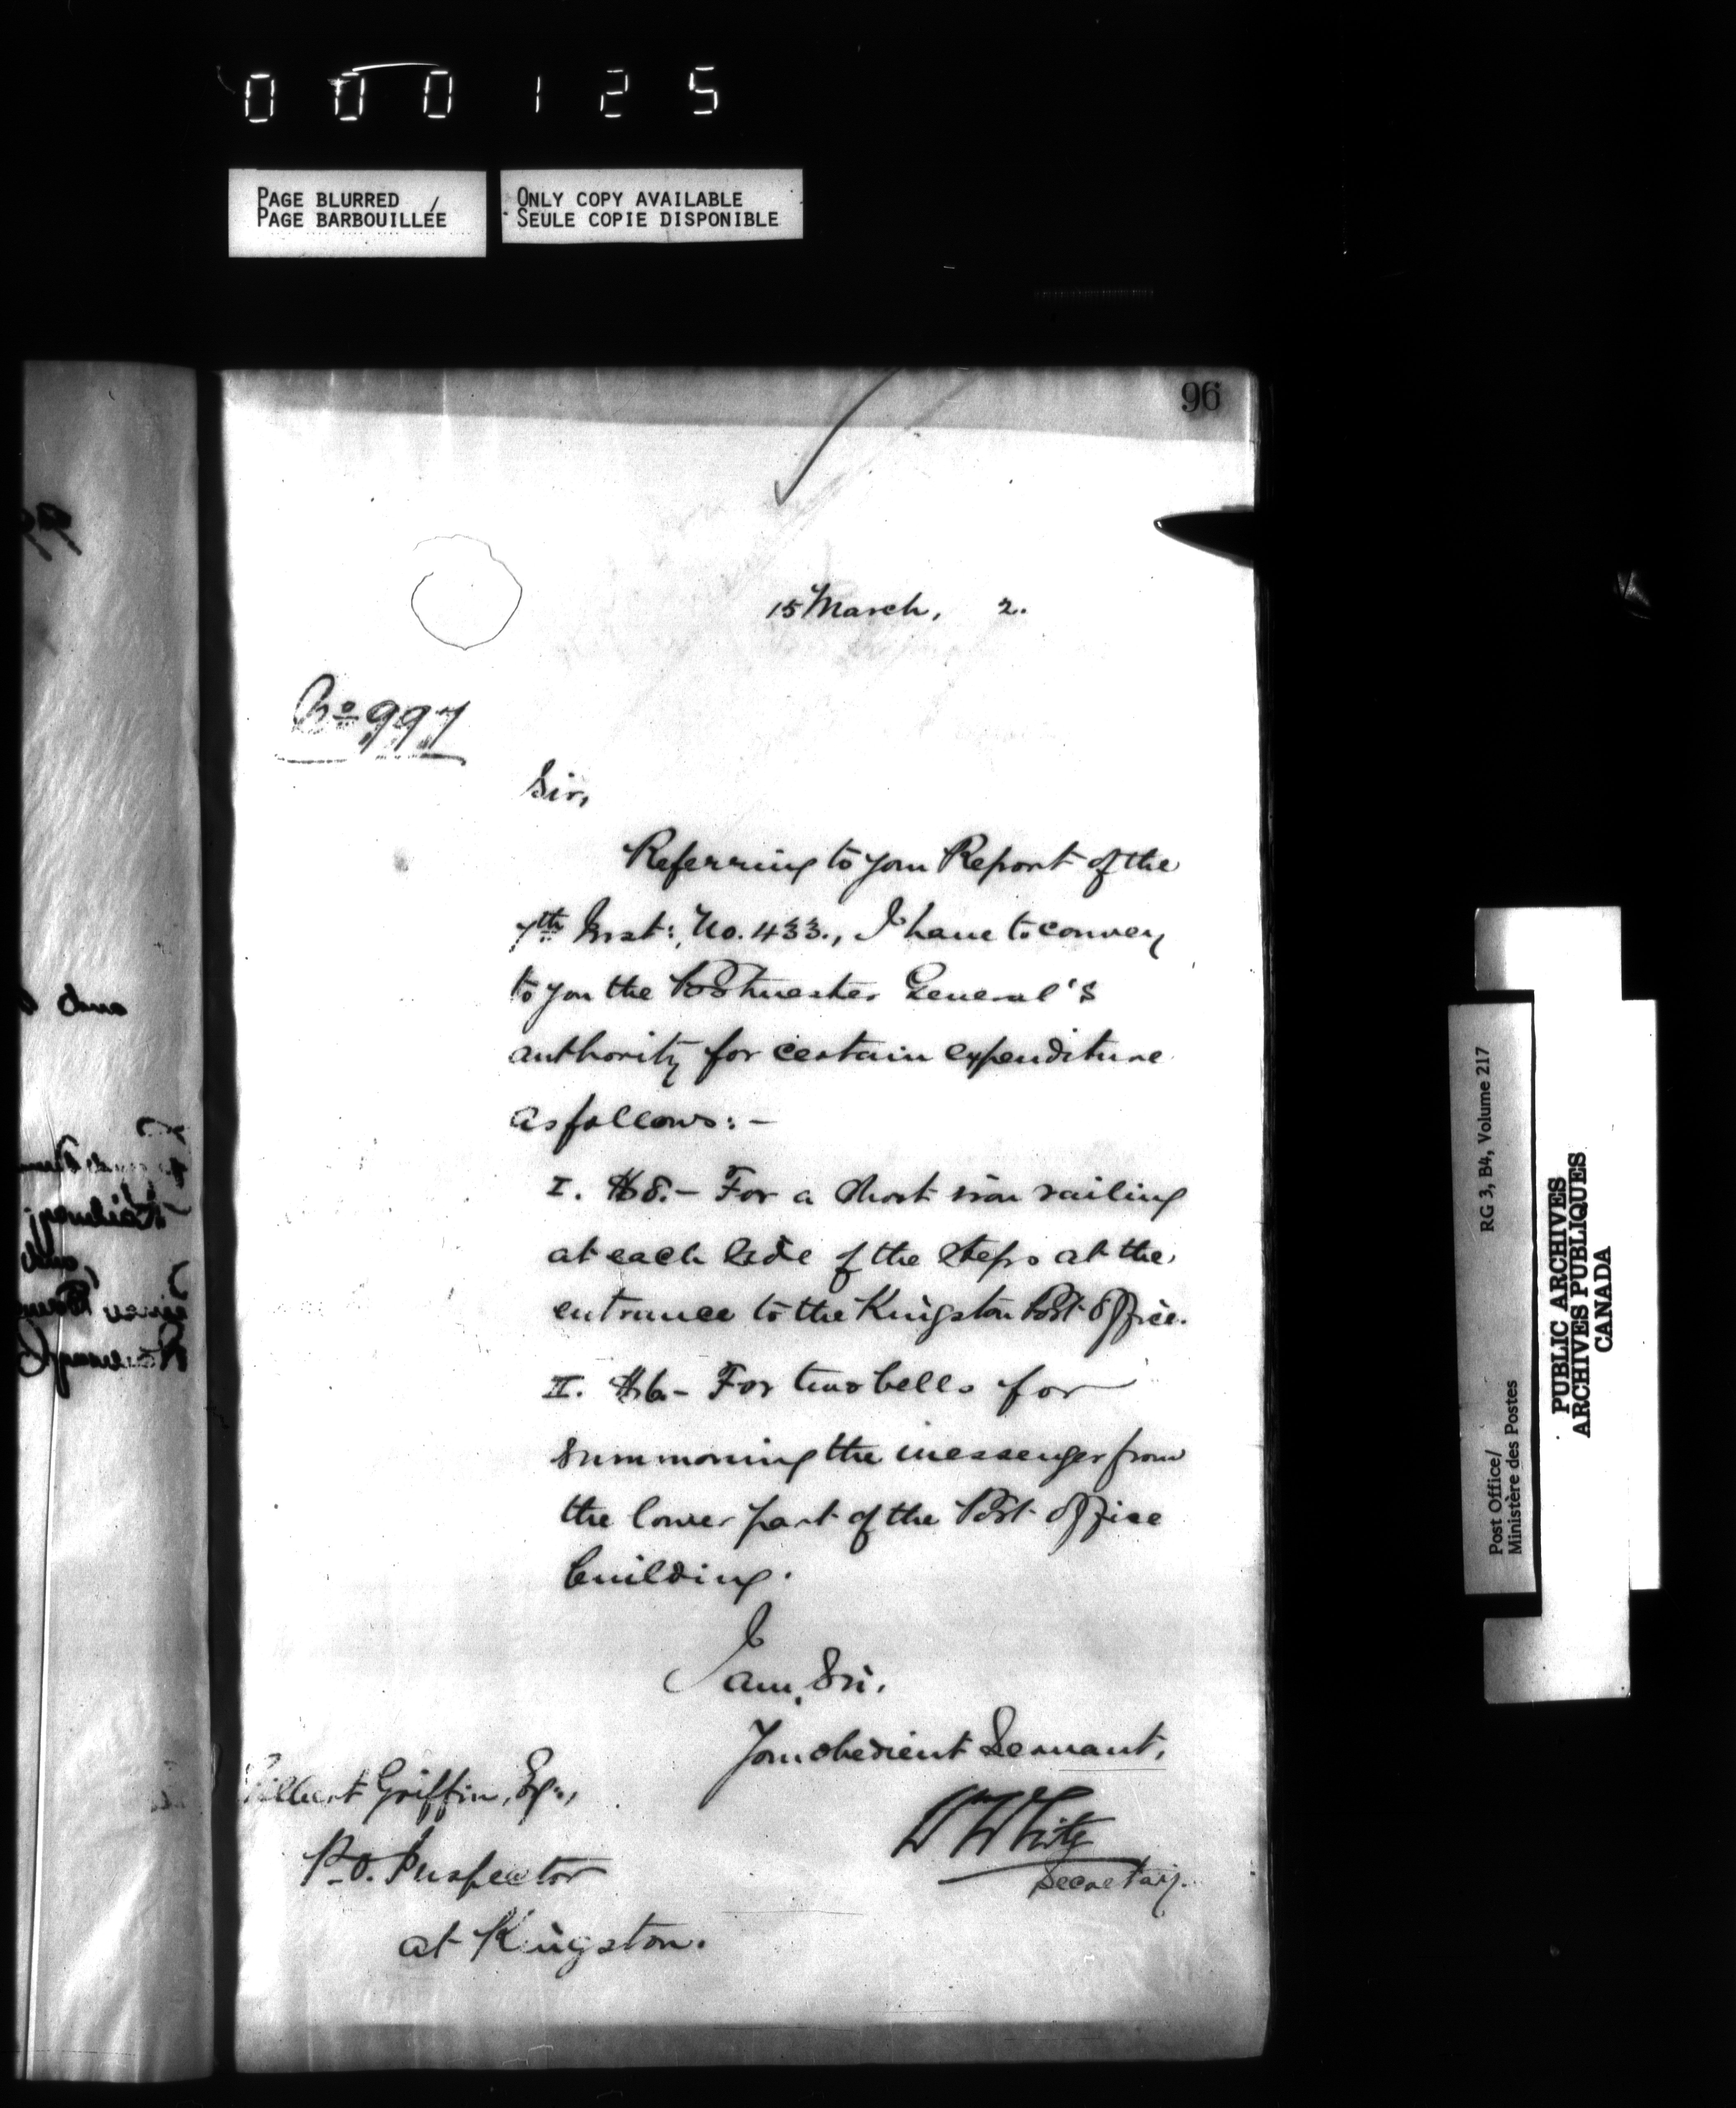 000125
PAGE BLURRED
PAGE BARBOUILLÉE
ONLY COPY AVAILABLE
SEULE COPIE DISPONIBLE
96
15 March, 2.
No 997
Sir,
Referring to your Report of the
7th Inst:, No. 433., I have to convey
to you the Postmaster General's
authority for certain expenditure
as follows:-
I. $8.- For a short iron railing
at each side of the steps at the
entrance to the Kingston Post Office.
II. $6.- For two bells for
summoning the messenger from
the lower part of the Post Office
building.
I
am, Sir,
Your obedient Servant,
Wm White
Secretary.
Gilbert Griffin, Esq.,
P.O. Inspector
at Kingston.
RG 3, B4, Volume 217
Post Office/
Ministère des Postes
PUBLIC ARCHIVES
ARCHIVES PUBLIQUES
CANADA